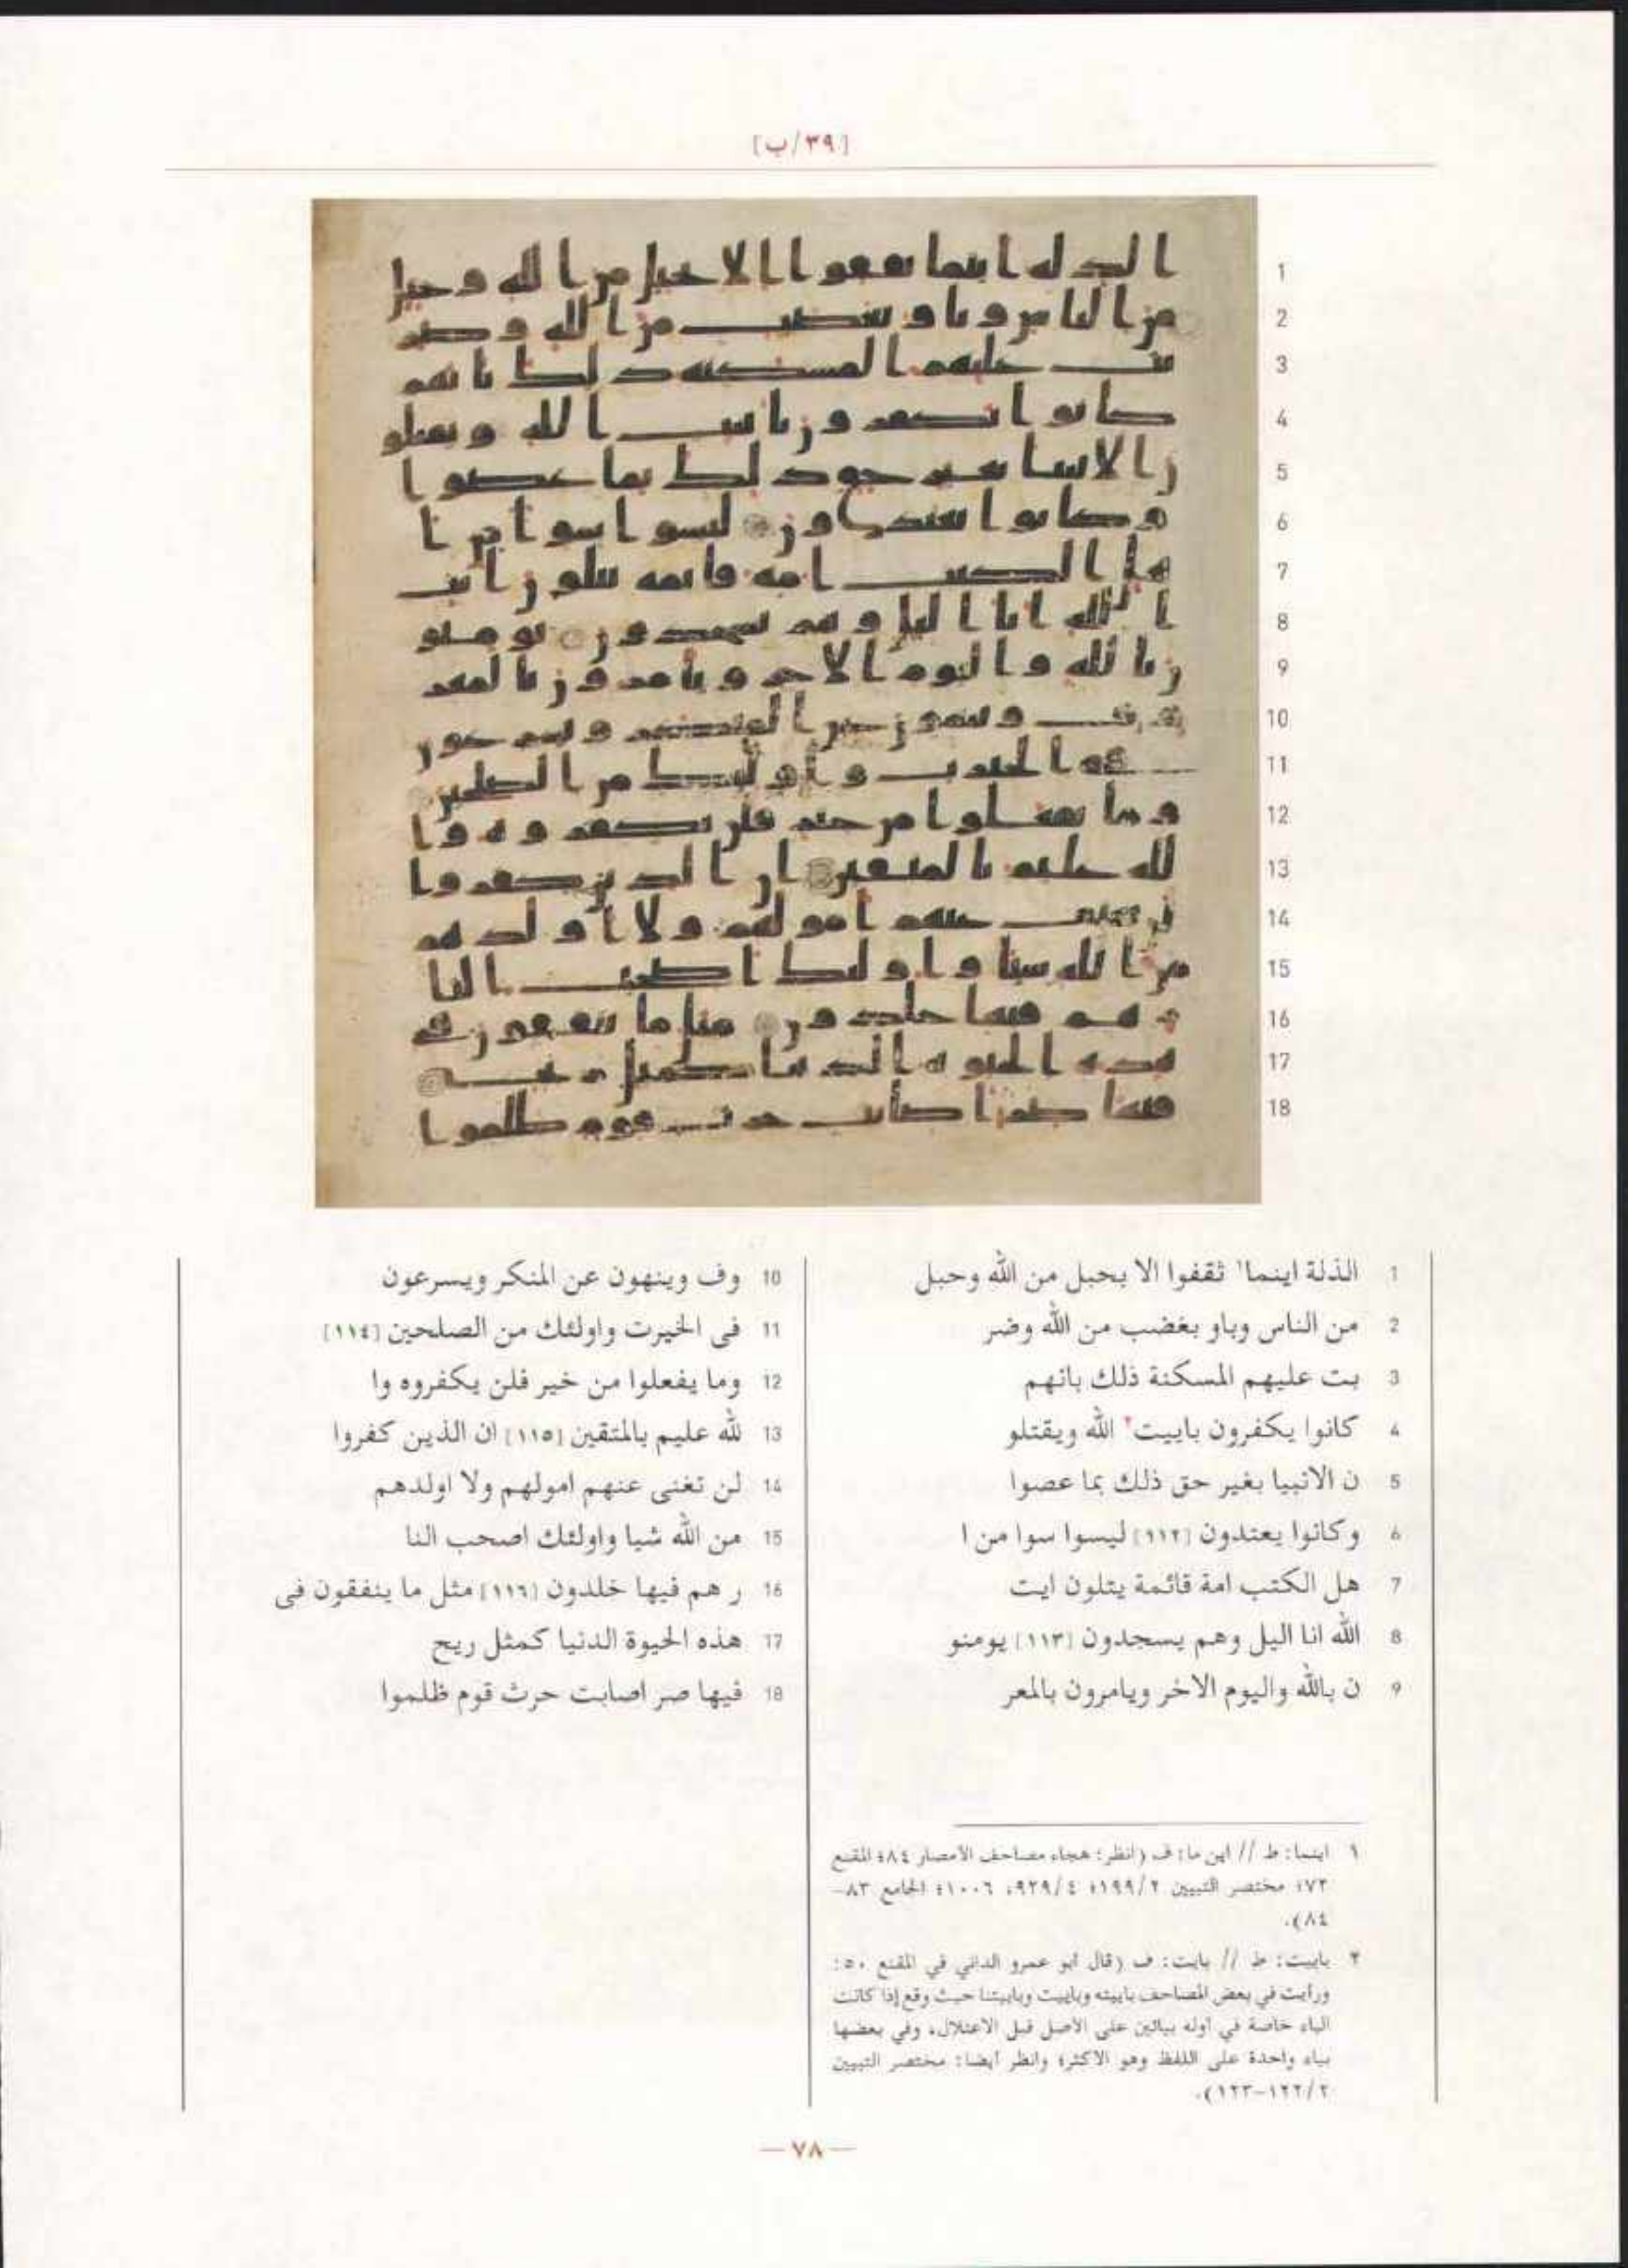 [٣٩/ب]
1 الذلة اينما١ ثقفوا الا بحبل من الله وحبل
2 من الناس وباو بغضب من الله وضر
3 بت عليهم المسكنة ذلك بانهم
4 كانوا يكفرون باييت٢ الله ويقتلو
5 ن الانبيا بغير حق ذلك بما عصوا
6 وكانوا يعتدون [١١٢] ليسوا سوا من ا
7 هل الكتب امة قائمة يتلون ايت
8 الله انا اليل وهم يسجدون [١١٣] يومنو
9 ن بالله واليوم الاخر ويامرون بالمعر
10 وف وينهون عن المنكر ويسرعون
11 فى الخيرت واولئك من الصلحين [١١٤]
12 وما يفعلوا من خير فلن يكفروه وا
13 لله عليم بالمتقين [١١٥] ان الذين كفروا
14 لن تغنى عنهم امولهم ولا اولدهم
15 من الله شيا واولئك اصحب النا
16 ر هم فيها خلدون [١١٦] مثل ما ينفقون فى
17 هذه الحيوة الدنيا كمثل ريح
18 فيها صر اصابت حرث قوم ظلموا
١ اينما: ط // اين ما: ف (انظر: هجاء مصاحف الأمصار ٨٤؛ المقنع
٧٢؛ مختصر التبيين ١٩٩/٢؛ ٩٢٩/٤، ١٠٠٦؛ الجامع ٨٣-
٨٤).
٢ باييت: ط // بايت: ف (قال أبو عمرو الداني في المقنع ٥٠:
ورأيت في بعض المصاحف باييته وباييت وباييتنا حيث وقع إذا كانت
الباء خاصة في أوله بيائين على الأصل قبل الاعتلال، وفي بعضها
بياء واحدة على اللفظ وهو الأكثر؛ وانظر أيضا: مختصر التبيين
١٢٢/٢-١٢٣).
— ٧٨ —